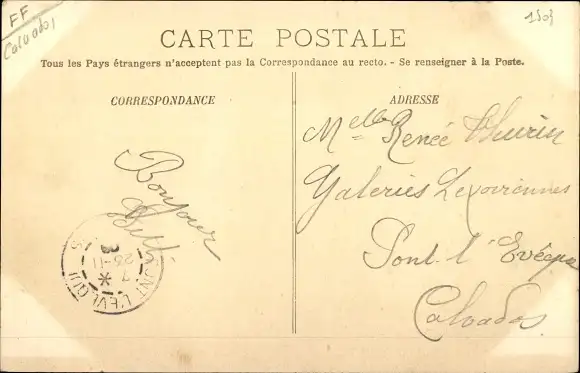 FF
Calvados
1903
CARTE POSTALE
Tous les Pays étrangers n'acceptent pas la Correspondance au recto. - Se renseigner à la Poste.
CORRESPONDANCE
Bonjour
PONT-L'EVEQUE
7
26-11
ADRESSE
Melle Renée Thurin
Galeries Lexoviennes
Pont-l'Evêque
Calvados